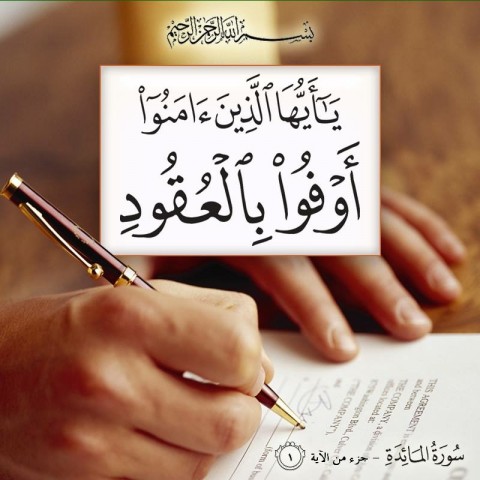 بِسْمِ اللَّهِ الرَّحْمَٰنِ الرَّحِيمِ
يَٰٓأَيُّهَا ٱلَّذِينَ ءَامَنُوٓا۟
أَوْفُوا۟ بِٱلْعُقُودِ
THIS AGREEMENT
and between
THE COMPANY, a
THE COMPANY.
سُورَةُ المَائِدَةِ - جزء من الآية ١